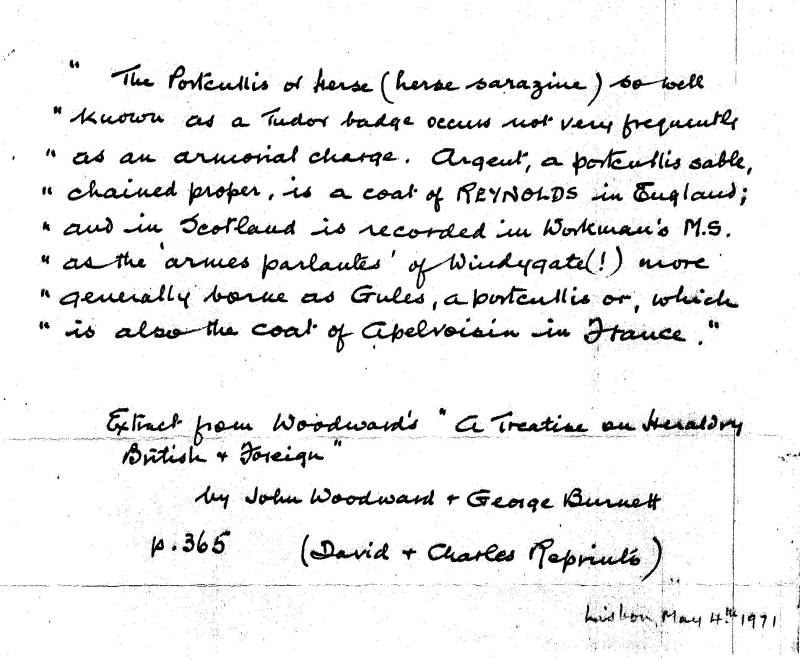 " The Portcullis or herse (herse sarazine) so well
" known as a Tudor badge occurs not very frequently
" as an armorial charge. Argent, a portcullis sable,
" chained proper, is a coat of REYNOLDS in England;
" and in Scotland is recorded in Workman's M.S.
" as the 'armes parlantes' of Windygate(!) more
" generally borne as Gules, a portcullis or, which
" is also the coat of Apelvoisin in France."
Extract from Woodward's " A Treatise on Heraldry
British + Foreign"
by John Woodward + George Burnett
p.365 (David + Charles Reprints)
Lisbon May 4.th 1971